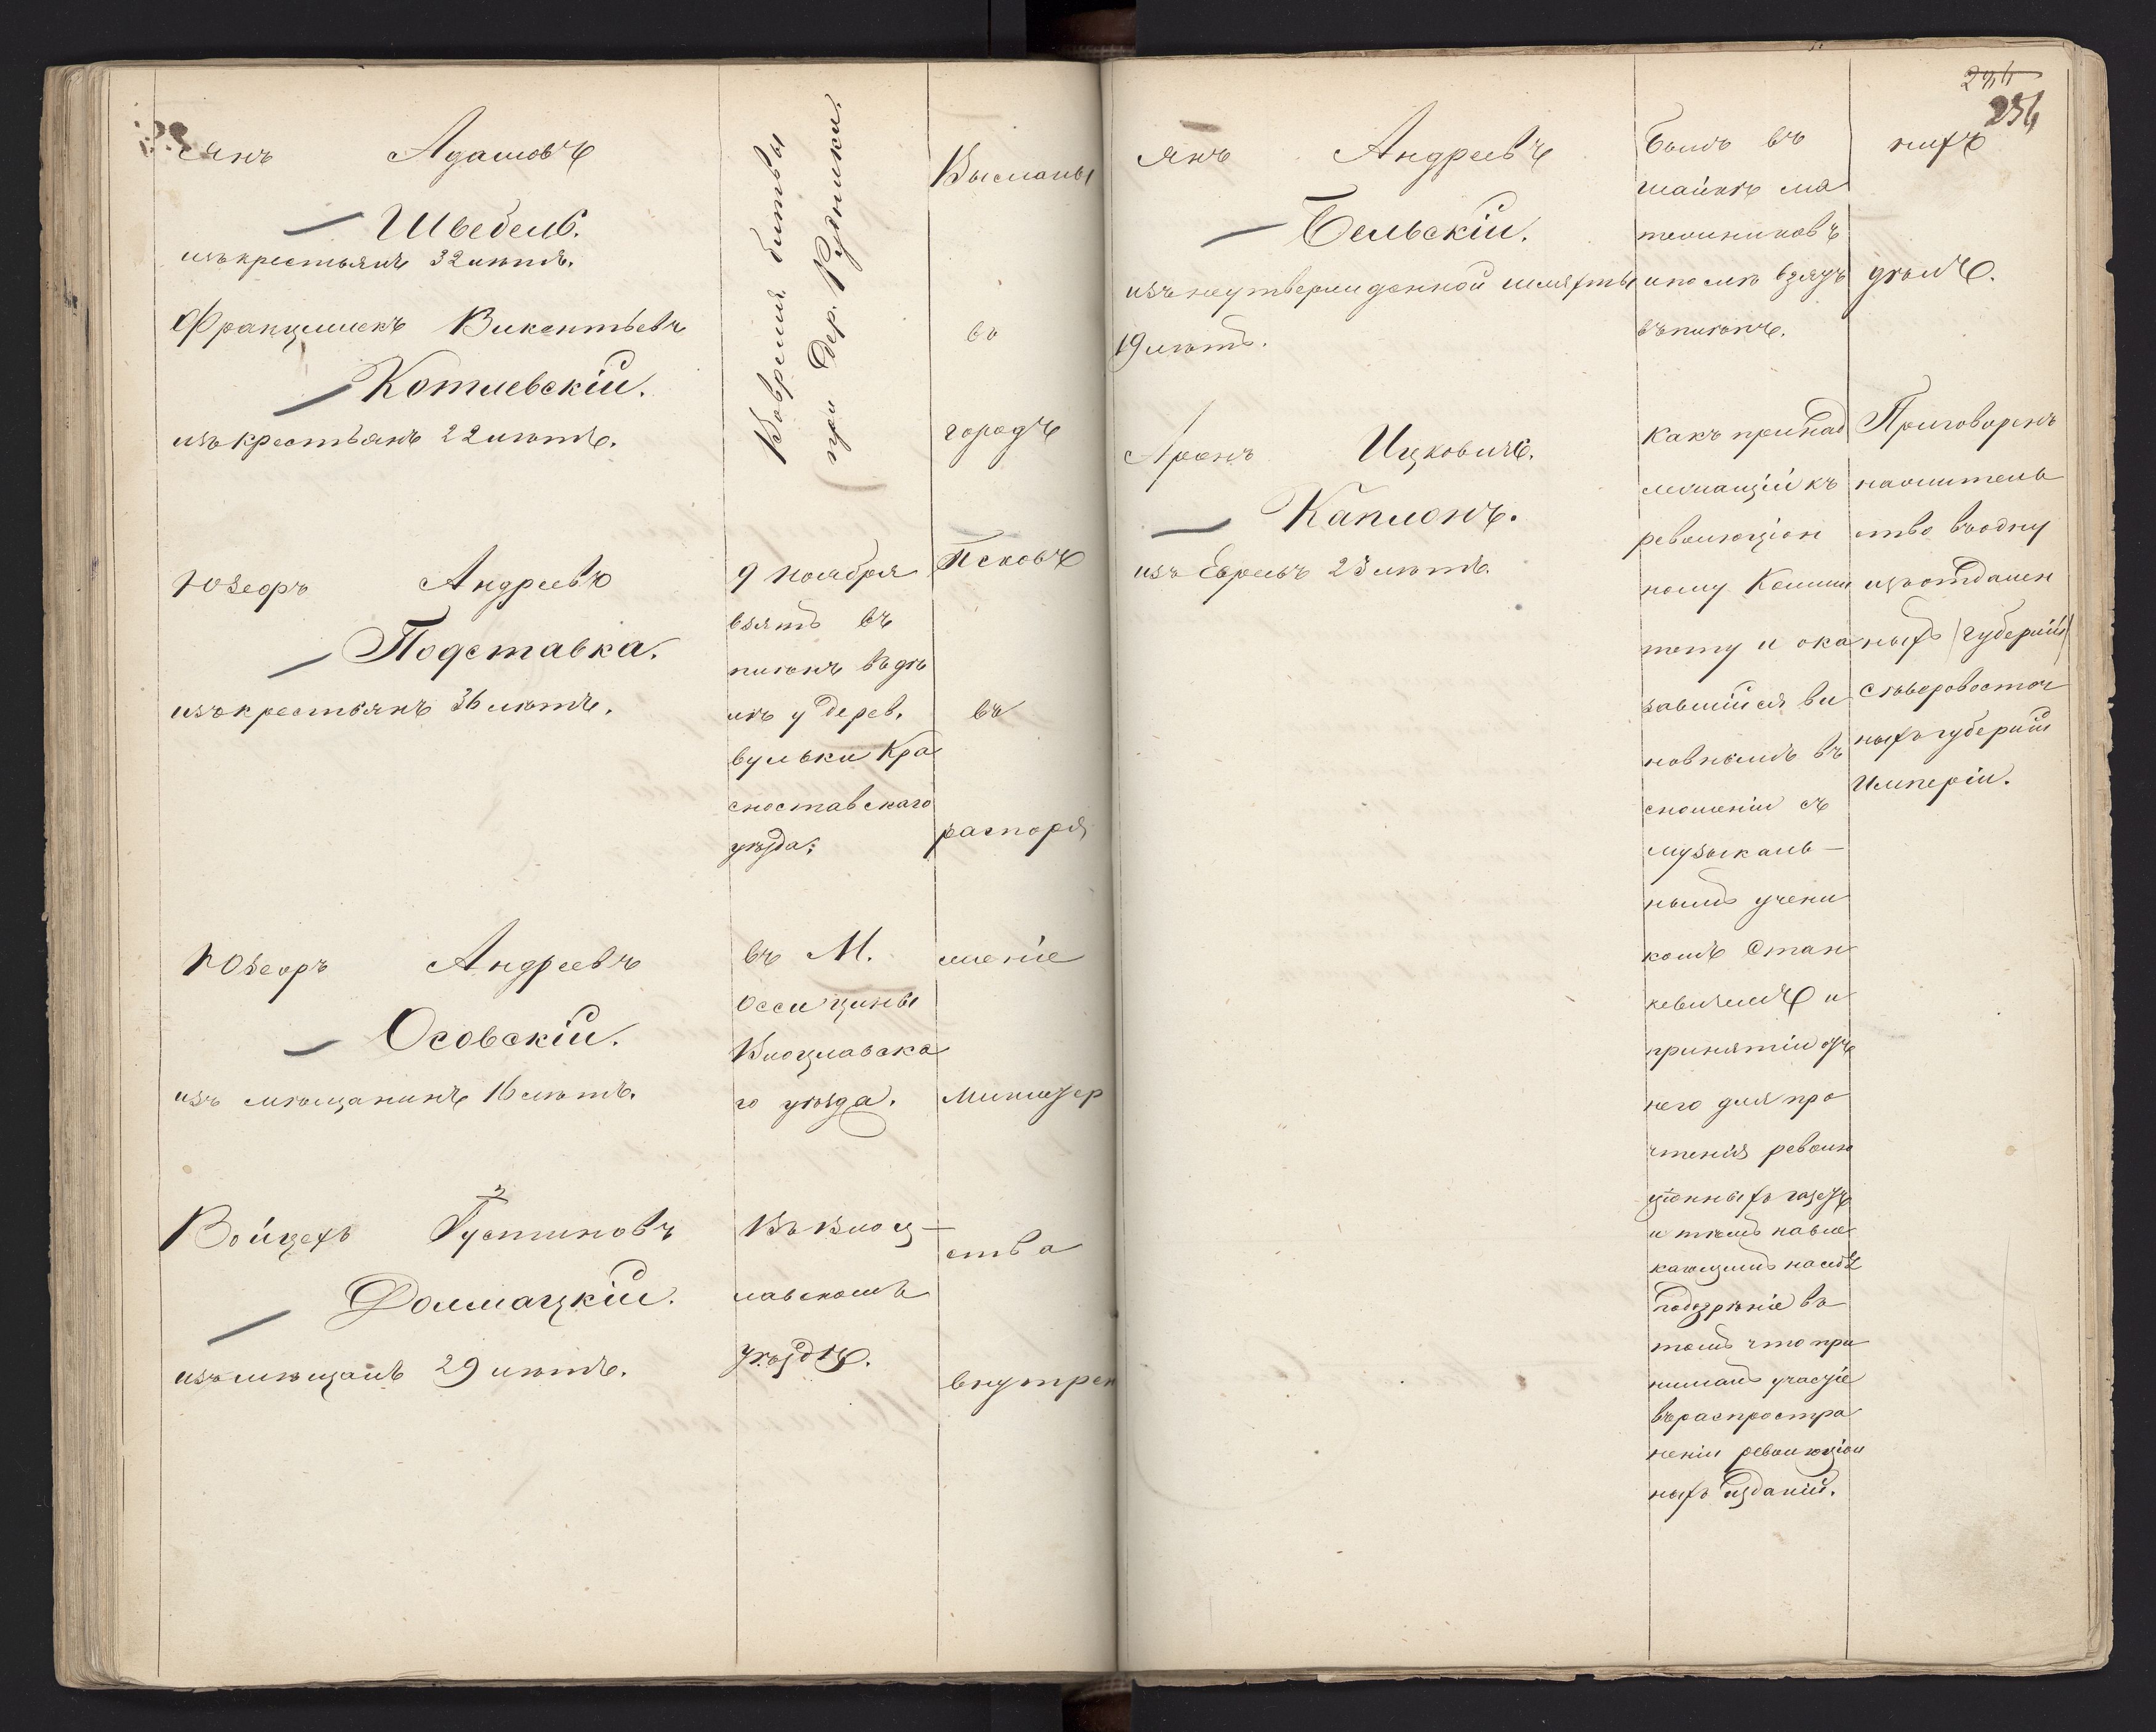 Янъ Адамовъ
Швебель.
изъ крестьянъ 32 лѣтъ.
Францишекъ Викентьевъ
Котлевскій.
изъ крестьянъ 22 лѣтъ.
Юзефъ Андреевъ
Подставка.
изъ крестьянъ 36 лѣтъ.
Юзефъ Андреевъ
Осовскій.
изъ мѣщанинъ 16 лѣтъ.
Войцехъ Густиновъ
Долмацкій.
изъ мѣщанъ 29 лѣтъ.
Вовремя битвы
при дер. Рудники.
9 Ноября
взятъ въ
плѣнъ въ дѣ
лѣ у дерев.
вульки Кра
сноставскаго
уѣзда;
въ М.
Осси щины
Влоцлавска
го уѣзда.
Въ Влоц-
лавскомъ
уѣздѣ.
Высланы
во
городъ
Псковъ
въ
распоря
женіе
Министер
ства
внутрен
234
236
Янъ Андреевъ
Бельскій.
изъ неутвержденной шляхты
19 лѣтъ.
Аронъ Ицковичъ.
Каплонъ.
изъ Евреевъ 23 лѣтъ.
былъ въ
шайкѣ мя
тежниковъ
и по мѣ взятъ
въ плѣнъ.
Какъ принад
лежащій къ
революціон
ному Коми
тету и ока
завшійся ви
новнымъ въ
сношеніи съ
музыкаль-
нымъ учени
комъ Стан
кевичемъ и
принятіи отъ
него для про
чтенія револю
ціонныхъ газетъ
и тѣмъ навле
кающимъ на себя
подозрѣніе въ
томъ что при
нималъ участіе
въ распростра
неніи революціон
ныхъ изданій.
нихъ
дѣлъ.
Приговоренъ
на житель
ство въ одну
изъ отдален
ныхъ (губерній)
сѣверовосточ
ныхъ губерній
Имперіи.